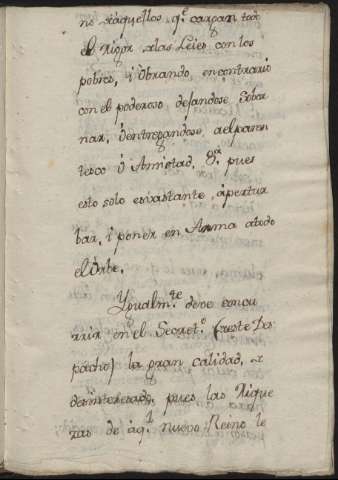 no xaquellos, q.e cargan todo
el Rigor xlas Leies con los
pobres, i obrando, en contrario
con el poderoso dejandose sobor
nar, ò entregandose, a el paren
tesco ò Amistad, &.a pues
esto solo es vastante, à pertur
bar, i poner en Arma a todo
el Orbe.
Ygualm.te deve concu
rrir en el Secret.o (xeste Des
pacho) la gran calidad, x
desinteresado, pues las Rique
zas de aq.l nuevo Reino le